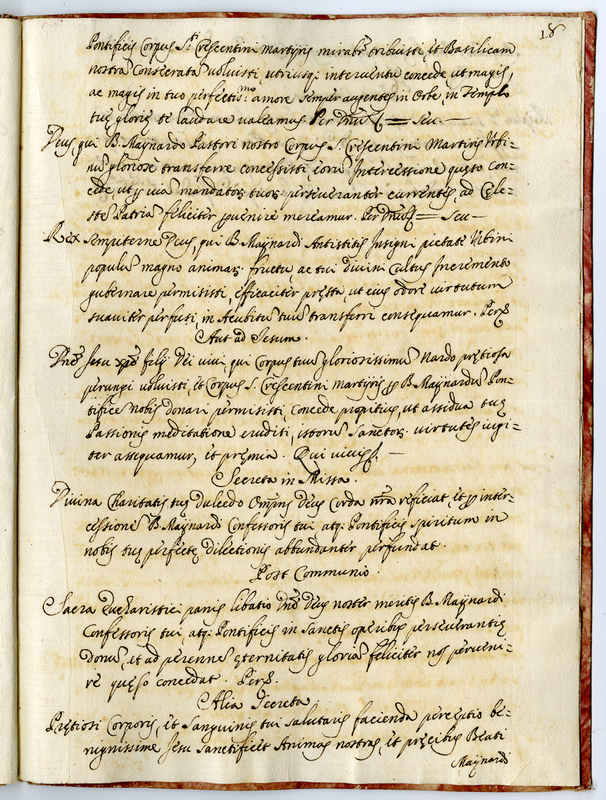 18
Pontificis Corpus S.ti Crescentini martyris mirabr̃ tribuisti, et Basilicam
nostrã Consecratã uoluisti, utriusq; interuentu concede ut magis,
ac magis in tuo perfectis.mo amore semper augentes in Orbe, in Templo
tuę glorię te laudare ualeamus. Per Dnũ = Seu. —
Deus, qui B. Maynardo Pastori nostro Corpus S. Crescentini Martiris Vrbi-
nũ gloriosè transferre concessisti, eorũ Intercessione quęso con-
cede ut p uiã mandatoꝝ tuoꝝ perseueranter currentes, ad Cęle-
stẽ Patriã feliciter puenire mereamur. Per Dnũ = Seu —
Rex sempiterne Deus, qui B. Maynardi Antistitis Insigni pietate Vrbini
populũ magno animaꝝ fructu, ac tui Diuini Cultus Incremento
gubernare permisisti, efficaciter pręsta, ut eius odore uirtutum
suauiter perfusi, in Atrubitũ tuũ transferri consequamur. Per
Aut ad Iesum.
Dnẽ Iesu xpẽ filij Dei uiui, qui Corpus tuũ gloriosissimũ Nardo prętiosa
perungi uoluisti, et Corpus S. Crescentini Martyris p B. Maynardũ Pon-
tificẽ nobis donari permisisti, Concede propitius, ut assidua tuę
Passionis meditatione eruditi, istorũ Sanctoꝝ uirtutes iugi-
ter assequamur, et pręmia. Qui uiuis. —
Secreta in Missa.
Diuina Charitatis tuę Dulcedo Omps Deus Corda nrã reficiat, et p inter-
cessionẽ B. Maynardi Confessoris tui, atq; Pontificis spiritum in
nobis tuę perfectę dilectionis abbundanter perfundat.
Post Communio.
Sacra Eucharistici panis libatio Dnẽ Deus noster meritis B. Maynardi
Confessoris tui, atq; Pontificis in sanctis operibus perseuerantię
Donũ, et ad perennẽ ęternitatis gloriã feliciter nos perueni-
re quęso concedat. Per.
Alia Secreta
Prętiosi Corporis, et Sanguinis tui salutaris facienda perceptio be-
nignissime Iesu Sanctificet Animas nostras, et pręcibus Beati
Maynardi